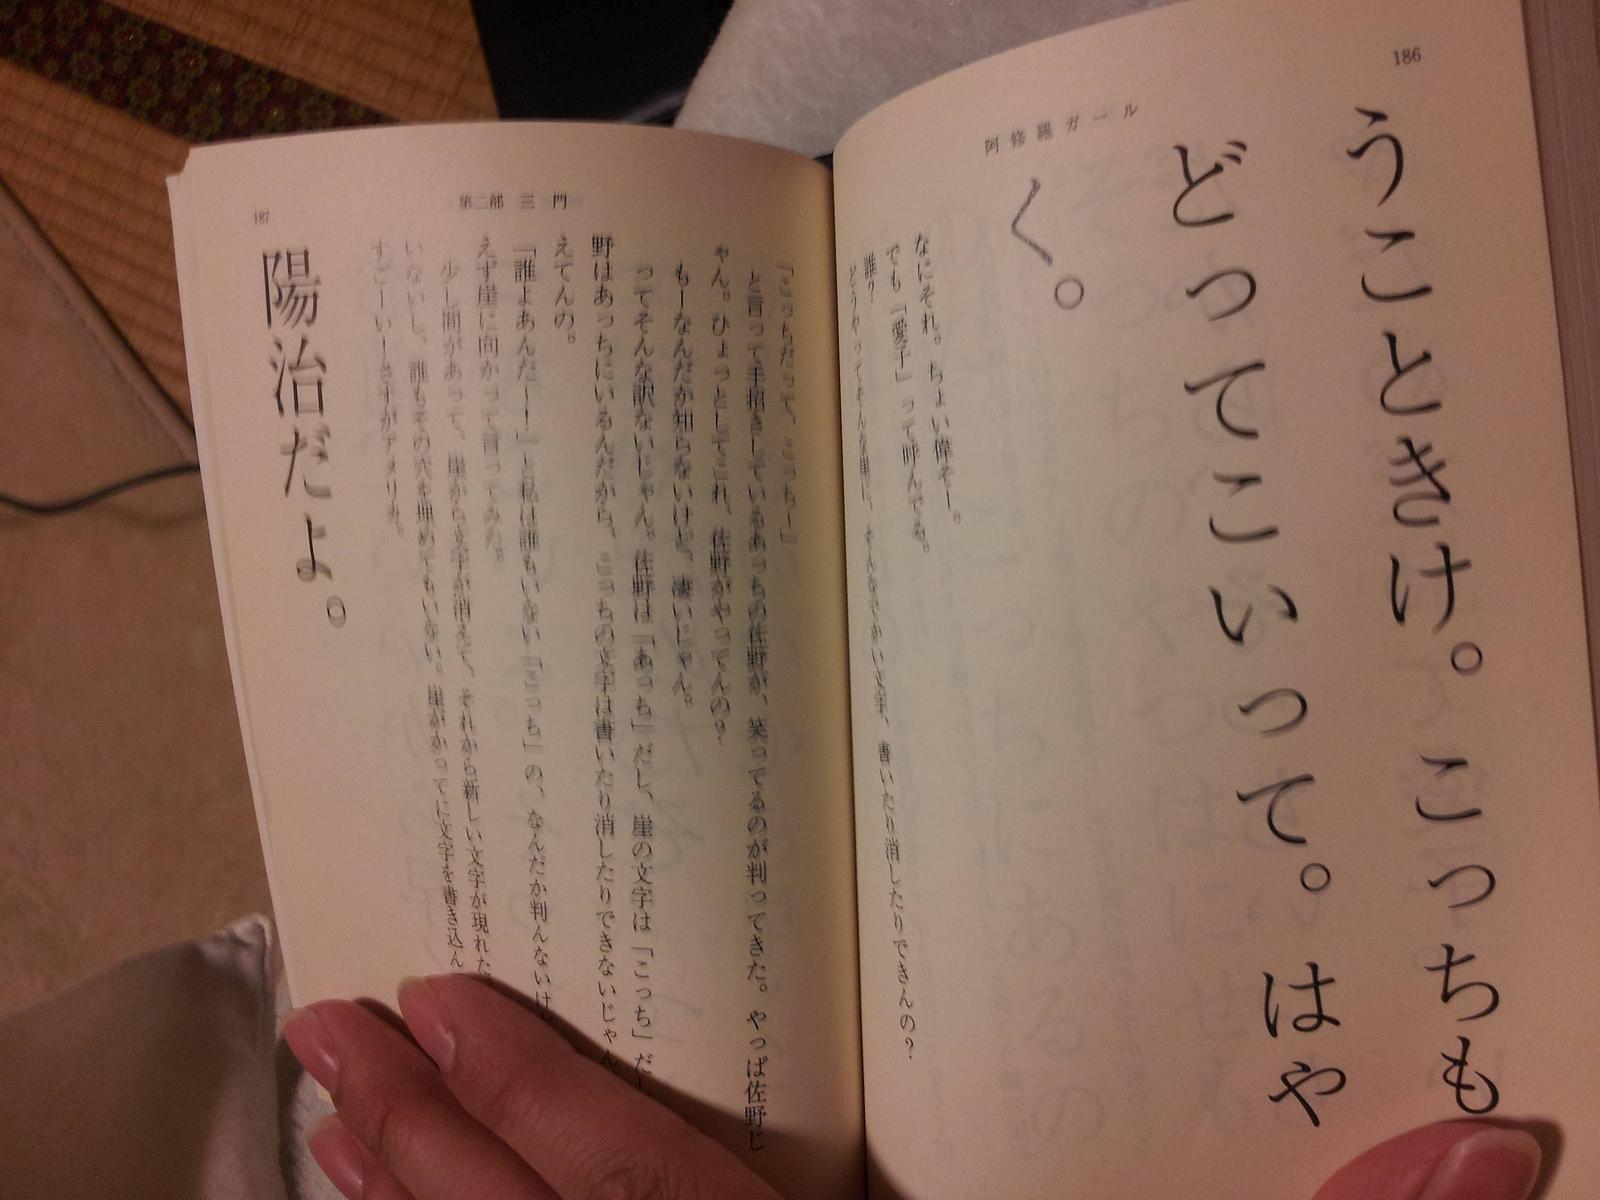 186
阿修羅ガール
うこときけ。こっちも
どってこいって。はや
く。
なにそれ。ちょい偉そー。
でも「愛子」って呼んでる。
誰?
どうやってそんな崖に、そんなでかい文字、書いたり消したりできんの?
187
第二部 三門
「こっちだって、こっちー」
と言って手招きしているあっちの佐野が、笑ってるのが判ってきた。やっぱ佐野じ
ゃん。ひょっとしてこれ、佐野がやってんの?
もーなんだか知らないけど、凄いじゃん。
ってそんな訳ないじゃん。佐野は「あっち」だし、崖の文字は「こっち」だし
野はあっちにいるんだから、こっちの文字は書いたり消したりできないじゃん
えてんの。
「誰よあんだ〜！」と私は誰もいない「こっち」の、なんだか判んないけ
えず崖に向かって言ってみた。
少し間があって、崖から文字が消えて、それから新しい文字が現れた
いないし、誰もその穴を埋めてもいない。崖がかってに文字を書き込ん
すごーいーさすがアメリカ。
陽治だよ。